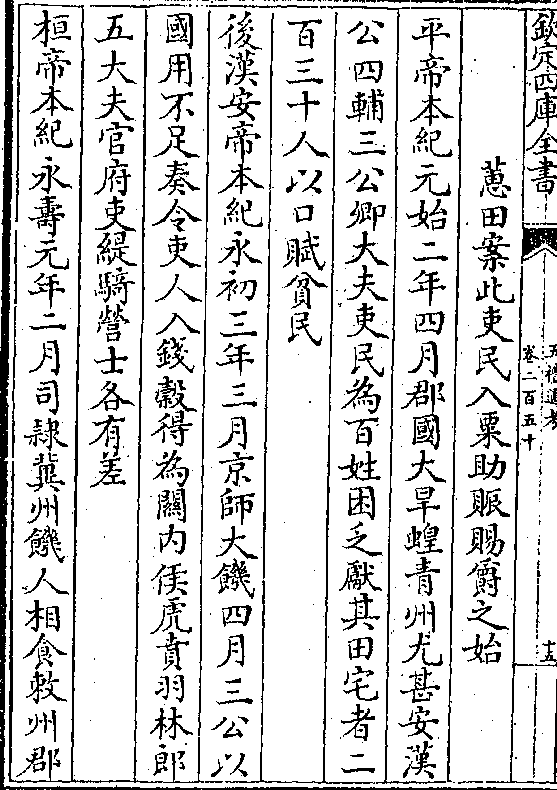 欽定四庫全書
五禮通考
卷二百五十
十五
蕙田案此吏民入粟助賑賜爵之始
平帝本紀元始二年四月郡國大旱蝗青州尤甚安漢
公四輔三公卿大夫吏民為百姓困乏獻其田宅者二
百三十人以口賦貧民
後漢安帝本紀永初三年三月京師大饑四月三公以
國用不足奏令吏人入錢穀得為關内侯虎賁羽林郎
五大夫官府吏緹騎營士各有差
桓帝本紀永壽元年二月司隸冀州饑人相食敕州郡